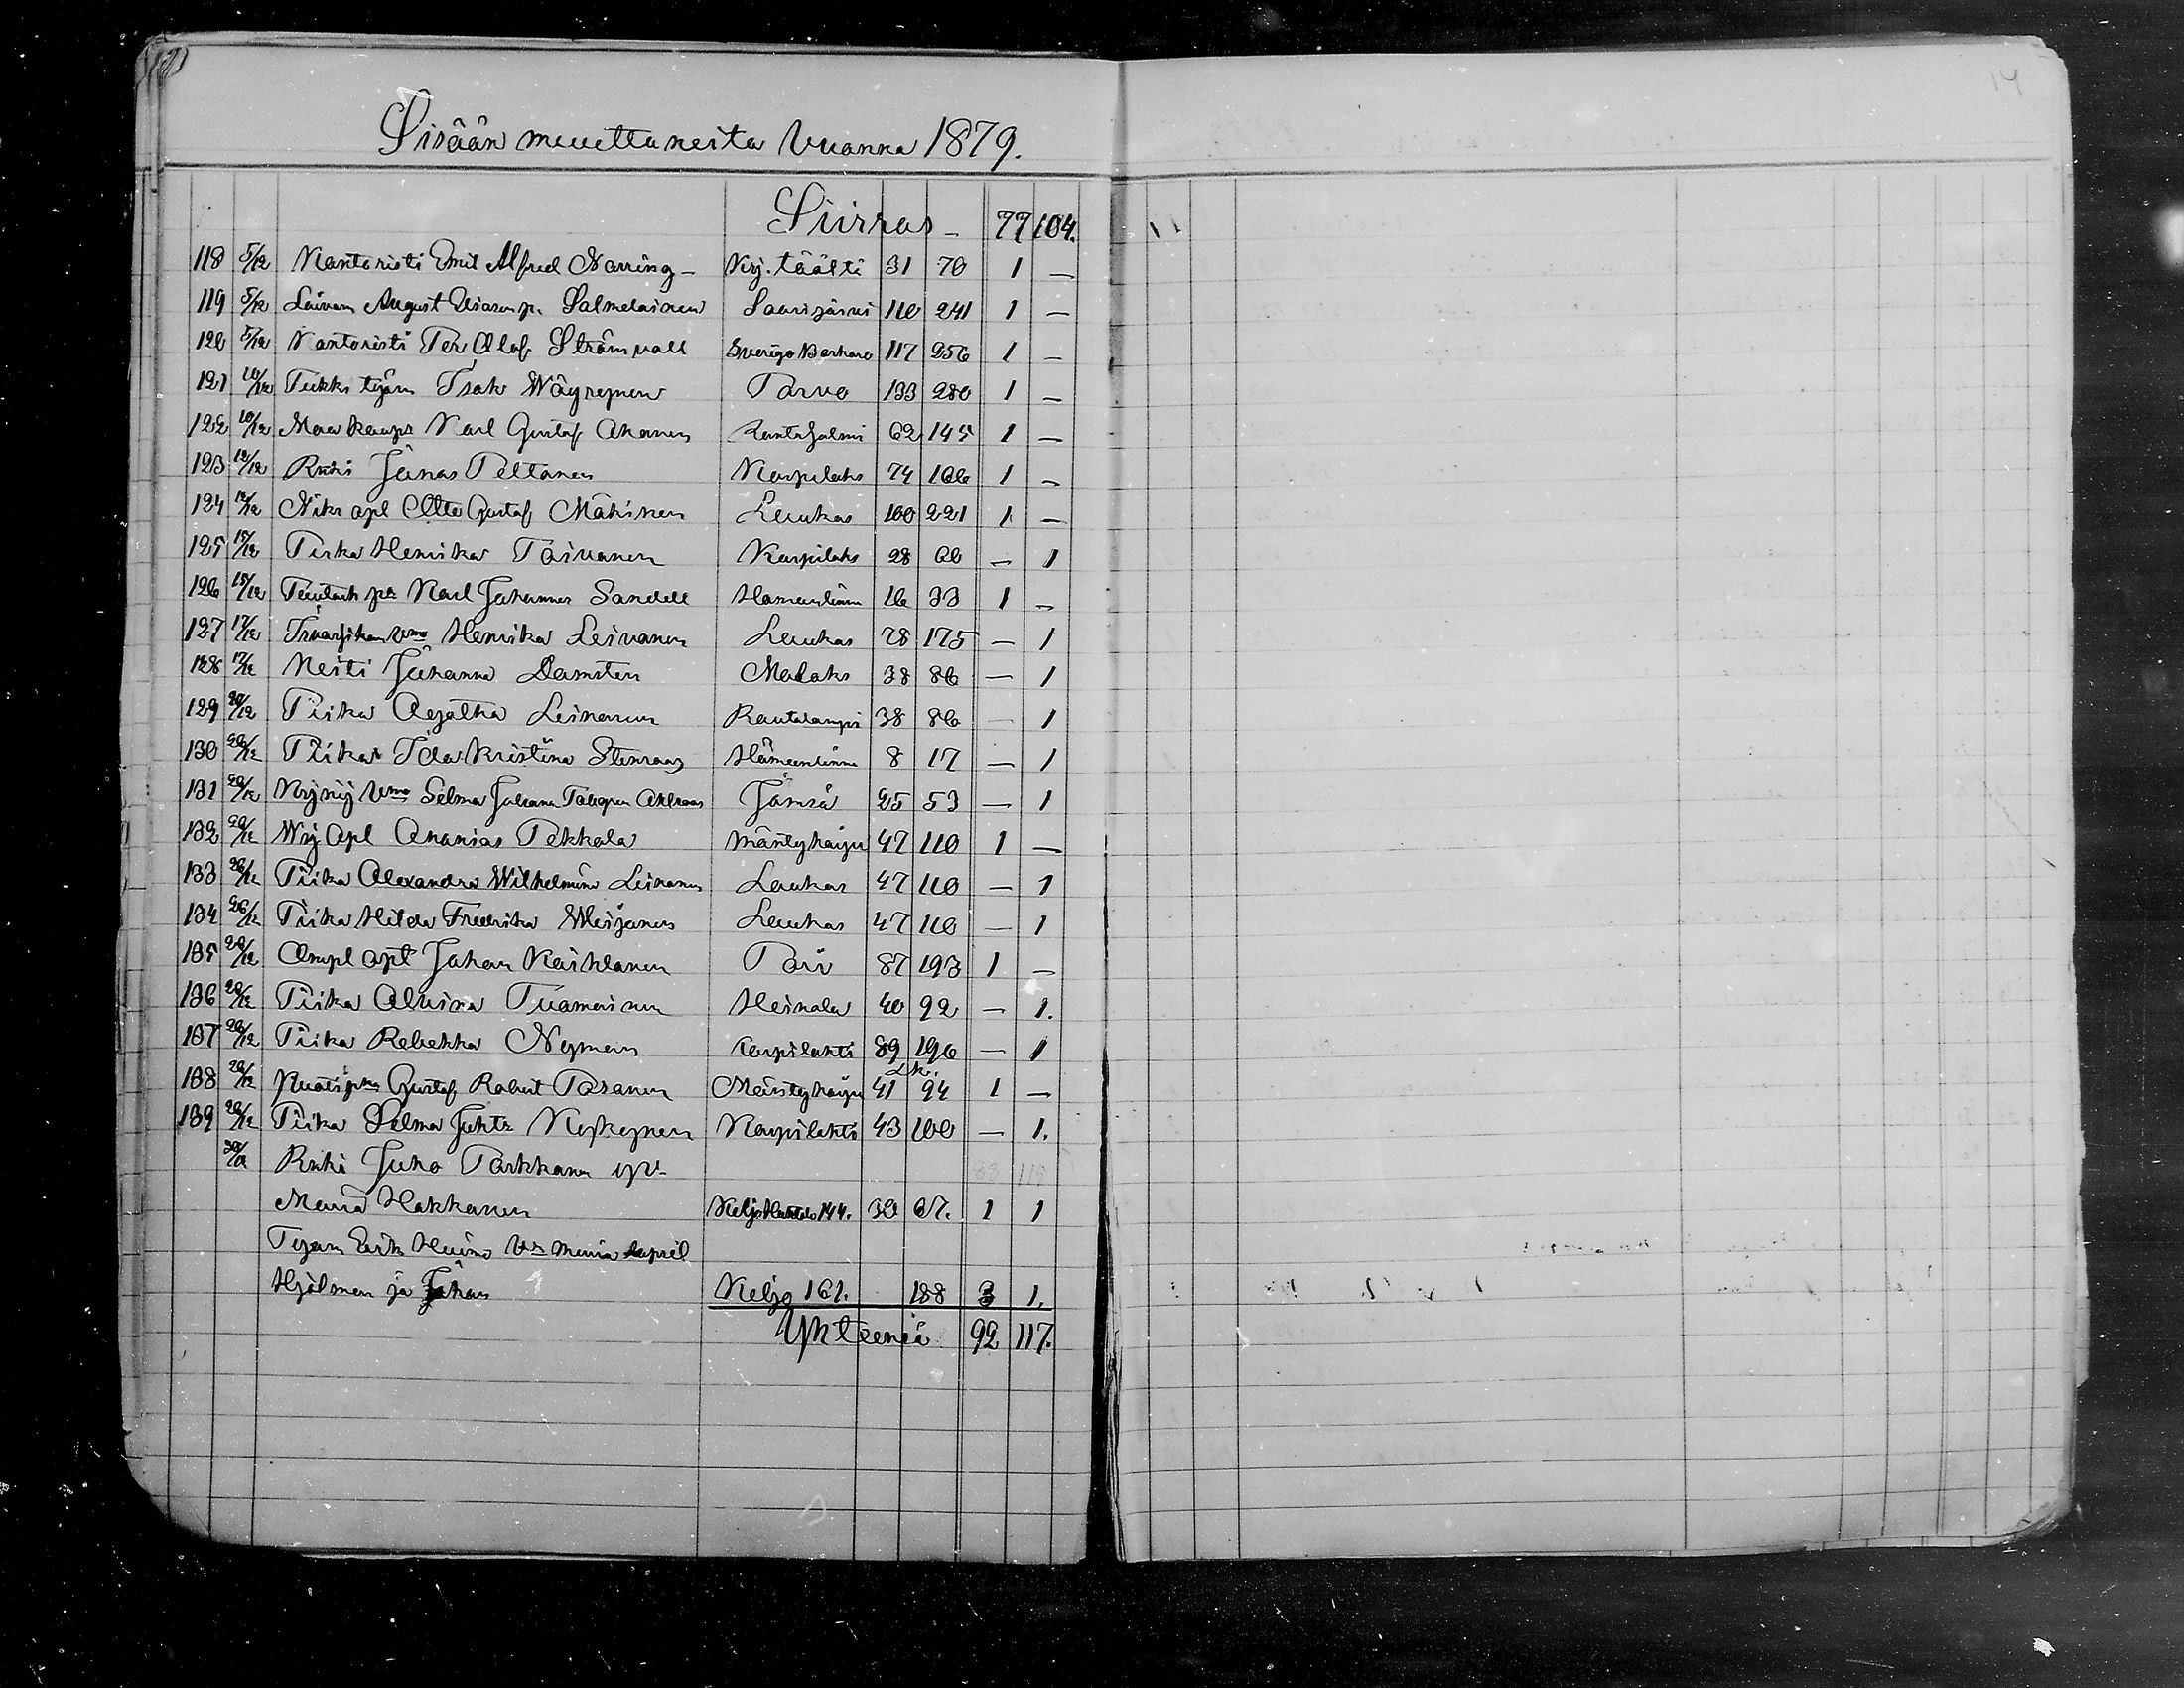 Sisään muuttaneita Vuonna 1879.
14
Siirros - 77 104.
118 5/12 Kontoristi Emil Alfred Narring - Krj. täälti 31 70 1 —
119 5/12 August p. Salmelainen Saarijärvi 110 241 1 —
120 5/12 Kontoristi Per Olof Strömvall Sverige 117 256 1 —
121 10/12 Isak Wäyrynen 133 280 1 —
122 10/12 Maa kaupi Karl Gustaf Ahonen Rantasalmi 62 145 1 —
123 12/12 Renki Jonas Peltonen Korpilaks 74 166 1 —
124 12/12 Nik: apl Otto Gustaf Mähönen Laukas 100 221 1 —
125 15/12 Piika Henrika Toivanen Korpilaks 28 60 — 1
126 15/12 Karl Johannes Sandell Hämeenlinna 16 33 1 —
127 17/12 Henrika Leivonen Laukas 78 175 — 1
128 17/12 Neiti Johanna Damsten Malaks 38 86 — 1
129 20/12 Piika Agatha Leinonen Rautalampi 38 86 — 1
130 20/12 Piika Ida Kristina Stenroos Hämeenlinna 8 17 — 1
131 20/12 Selma Johanna Ahlroos Jämsä 25 53 — 1
132 20/12 Apl Ananias Pekkala Mäntyharju 47 110 1 —
133 20/12 Piika Alexandra Wilhelmina Leivonen Laukas 47 110 — 1
134 20/12 Piika Hilda Fredrika Weijonen Laukas 47 110 — 1
135 20/12 apl Johan Kaihlanen 87 193 1 —
136 20/12 Piika Alvina Tuomainen Heinola 40 92 — 1.
137 20/12 Piika Rebekka Nyman Korpilahti 89 196 — 1
138 20/12 Gustaf Robert Pasanen Mäntyharju 41 94 1 —
139 20/12 Piika Selma Kyykynen Korpilahti 43 100 — 1.
Renki Juho Parkkonen
Maria Hakkanen Keljo 144. 30 67. 1 1
Erik Heino Maria
Hjalmar ja Johan Keljo 161. 188 3 1.
Yhteensä 92 117.